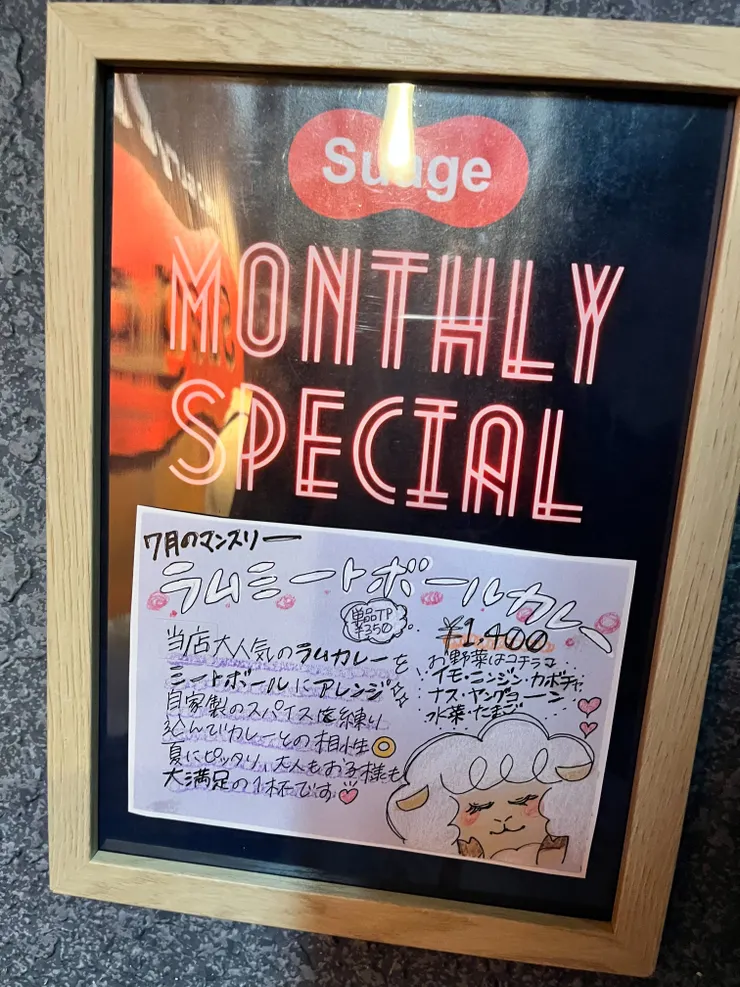 Suage
MONTHLY
SPECIAL
7月のマンスリー
ラムミートボールカレー
単品TP
¥350
¥1,400
当店大人気のラムカレーを
ミートボールにアレンジ
自家製のスパイスを練り
込んでカレーとの相性◎
夏にピッタリ、大人もお子様も
大満足の1杯です
お野菜はコチラ
イモ・ニンジン・カボチャ
ナス・ヤングコーン
水菜・たまご